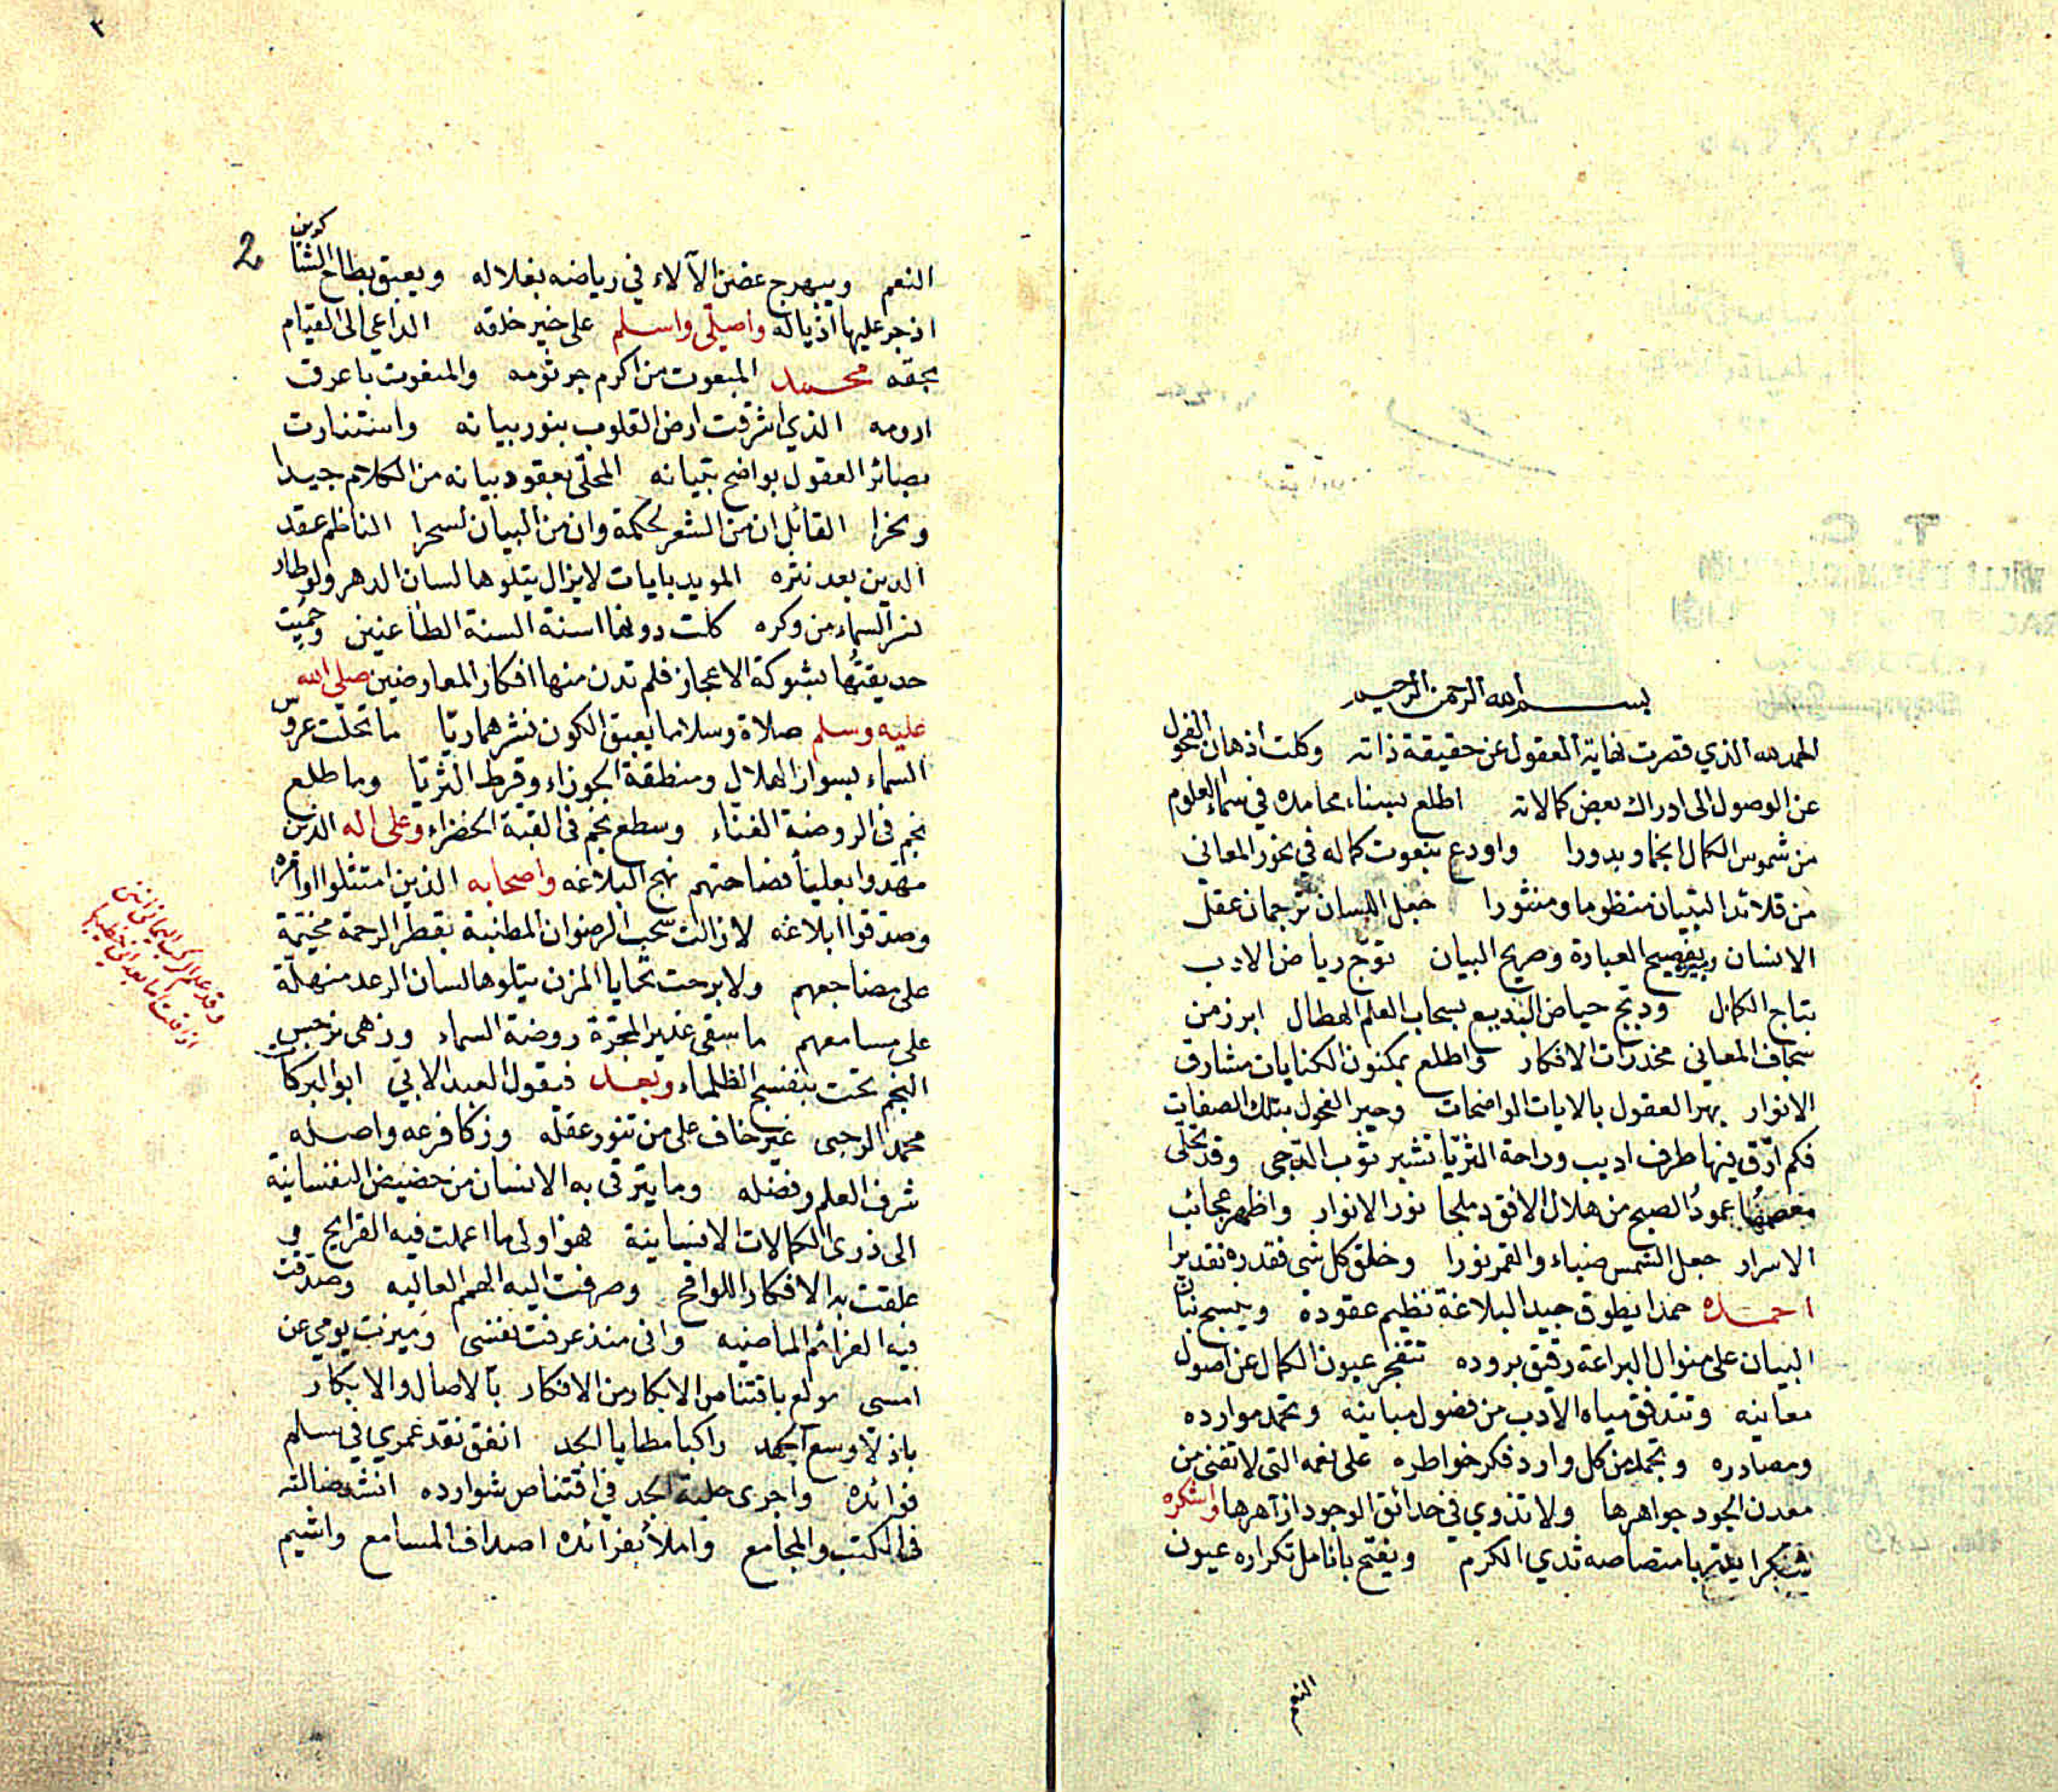 بسم الله الرحمن الرحيم
الحمد لله الذي قصرت نهاية العقول عن حقيقة ذاته وكلت اذهان الفحول
عن الوصول الى ادراك بعض كمالاته اطلع بسناء محامده في سماء العلوم
من شموس الكمال انجما وبدورا واودع بنعوت كماله في نحور المعاني
من قلائد التبيان منظوما ومنثورا جعل اللسان ترجمان عقل
الانسان بفصيح العبارة وصريح البيان توّج رياض الادب
بتاج الكمال ودبّج حياض البديع بسحاب العلم الهطال ابرز من
سجاف المعانى مخدرات الافكار واطلع بمكنون الكنايات مشارق
الانوار بهر العقول بالايات الواضحات وحير الفحول بتلك الصفات
فكم ارّق فيها طرف اديب وراحة الثريّا تشبر ثوب الدّجى وقد تحلّى
معصمها عمودُ الصبح من هلال الافق دملجا نور الانوار واظهر عجائب
الاسرار جعل الشمس ضياء والقمر نورا وخلق كل شى فقدره تقديرا
احمده حمدا يطوق جيد البلاغة نظيم عقوده وينسج بنان
البيان على منوال البراعة رقيق بروده تتفجر عيون الكمال عن اصول
معانيه وتتدفق مياه الادب من فضول مبانيه وتحمد موارده
ومصادره وتجمل من كل وارد فكر خواطره على نعمه التى لا تفنى من
معدن الجود جواهرها ولا تذوي في حدائق الوجود ازاهرها واشكره
شكرا يدر بامتصاصه ثدي الكرم ويفتح بانامل تكراره عيون
النعم
٢
2
النعم ويبهج غصن الآلاء في رياضه بغلاله ويعبق بطاح الثنا
اذ جر عليها اذياله واصلّى واسلم على خير خلقه الداعي الى القيام
بحقه محمد المبعوث من اكرم جرثومه والمنعوت باعرق
ارومه الذي اشرقت ارض القلوب بنور بيانه واستنارت
بصائر العقول بواضح تبيانه المحلّى بعقود بيانه من الكلام جيدا
ونحرا القائل ان من الشعر لحكمة وان من البيان لسحرا الناظم عقد
الدين بعد نثره المويد بايات لا يزال يتلوها لسان الدهر ولو طار
نسر السماء من وكره كلت دونها اسنة السنة الطاعنين وحُميت
حديقتها بشوكة الاعجاز فلم تدن منها افكار المعارضين صلى الله
عليه وسلم صلاة وسلاما يعبق الكون نشرهما ريّا ما تحلّت عروس
السماء بسوار الهلال ومنطقة الجوزاء وقرط الثريّا وما طلع
نجم فى الروضة الغناء وسطع نجم فى القبة الخضراء وعلى اله الذين
مهدوا بعلياء فصاحتهم نهج البلاغه واصحابه الذين امتثلوا اوامره
وصدقوا ابلاغه لا زالت سحب الرضوان المطنبة بقطر الرحمة مخيّمة
على مضاجعهم ولا برحت تحايا المزن يتلوها لسان الرعد منهلّة
على مسامعهم ما سقى غدير المجرّة روضة السماء وزهى نرجس
النجم تحت بنفسج الظلماء وبعد فيقول العبد الابي ابو البركات
محمد الرحبى غير خاف على من تنور عقله وزكا فرعه واصله
شرف العلم وفضله وما يترقى به الانسان من حضيض النفسانية
الى ذرى الكمالات الانسانية فهو اولى ما اعملت فيه القرايح و
علقت به الافكار اللواقح وصرفت اليه الهمم العاليه وصدقت
فيه العزائم الماضيه وانى منذ عرفت نفسى وميزت يومي عن
امسى مولع باقتناص الابكار من الافكار بالاصال والابكار
باذلا وسع الجهد راكبا مطايا الجد انفق نقد عمري في سلم
فوائده واجرى حلبة الجد في اقتناص شوارده انشد ضالته
فى الكتب والمجامع واملأ بفرائده اصداف المسامع واشيم
وقد علم الركب اليمانى اننى
اذا قلت اما بعد انى خطيبها